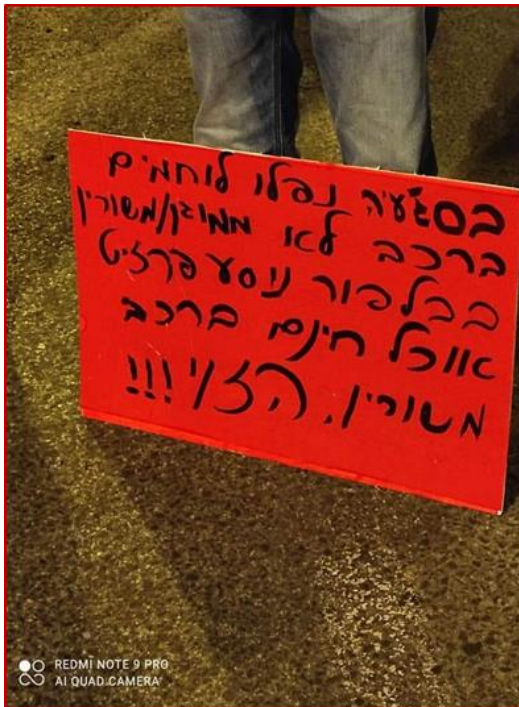 בסג'עיה נפלו לוחמים
ברכב לא ממוגן/משורין
בבלפור נוסע פרזיט
אוכל חינם ברכב
משורין. הזוי!!!
REDMI NOTE 9 PRO
AI QUAD CAMERA